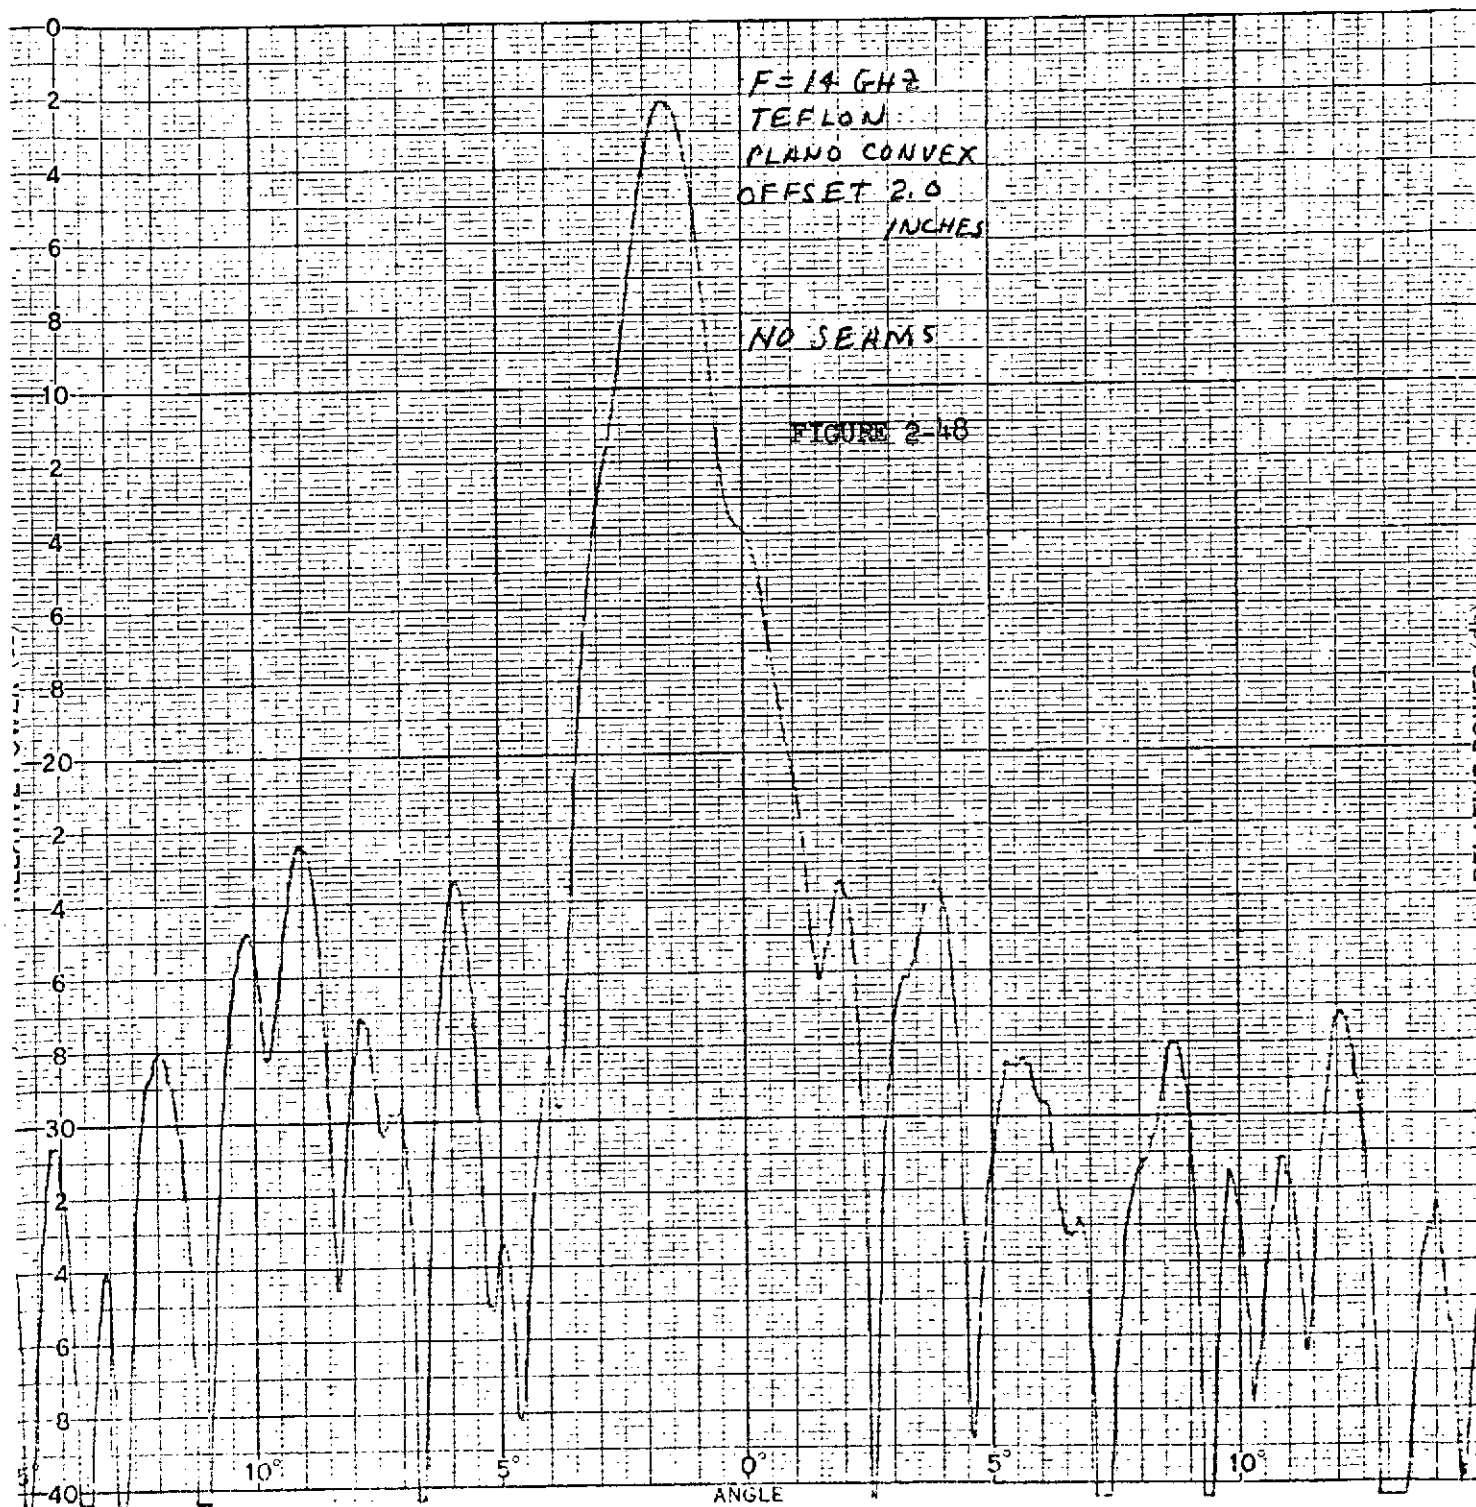 0
2
4
6
8
10
2
4
6
8
20
2
4
6
8
30
2
4
6
8
40
F = 14 GHz
TEFLON
PLANO CONVEX
OFFSET 2.0
INCHES
NO SEAMS
FIGURE 2-48
5°
10°
5°
0°
5°
10°
ANGLE